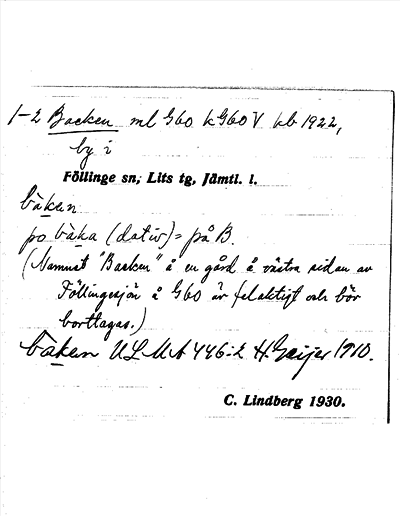 1-2 Backen ml G60 k G60V kb 1922,
by i
Föllinge sn, Lits tg, Jämtl. l.
bàken
po bàka (dativ) = på B.
(Namnet "Backen" å en gård å västra sidan av
Föllingesjön å G60 är felaktigt och bör
borttagas.)
bàken ULMA 446:2 H. Geijer 1910.
C. Lindberg 1930.